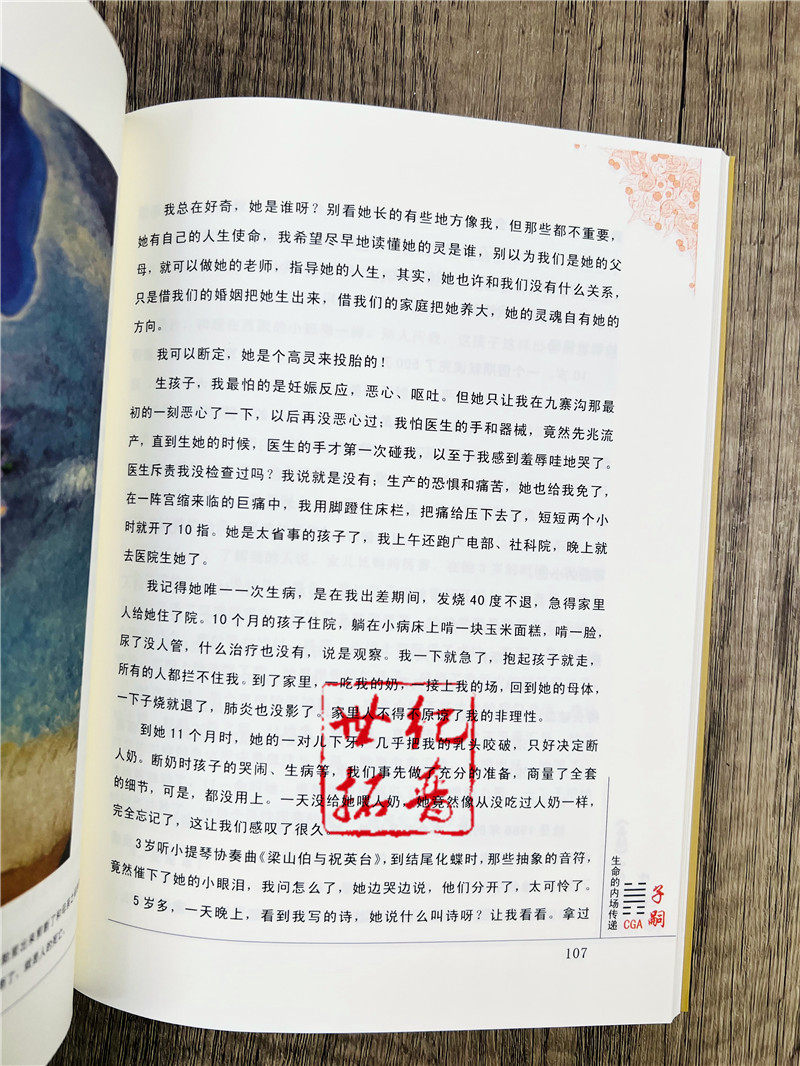 我总在好奇，她是谁呀？别看她长的有些地方像我，但那些都不重要，
她有自己的人生使命，我希望尽早地读懂她的灵是谁，别以为我们是她的父
母，就可以做她的老师，指导她的人生，其实，她也许和我们没有什么关系，
只是借我们的婚姻把她生出来，借我们的家庭把她养大，她的灵魂自有她的
方向。
我可以断定，她是个高灵来投胎的！
生孩子，我最怕的是妊娠反应，恶心、呕吐。但她只让我在九寨沟那最
初的一刻恶心了一下，以后再没恶心过；我怕医生的手和器械，竟然先兆流
产，直到生她的时候，医生的手才第一次碰我，以至于我感到羞辱哇地哭了。
医生斥责我没检查过吗？我说就是没有；生产的恐惧和痛苦，她也给我免了，
在一阵宫缩来临的巨痛中，我用脚蹬住床栏，把痛给压下去了，短短两个小
时就开了10指。她是太省事的孩子了，我上午还跑广电部、社科院，晚上就
去医院生她了。
我记得她唯一一次生病，是在我出差期间，发烧40度不退，急得家里
人给她住了院。10个月的孩子住院，躺在小病床上啃一块玉米面糕，啃一脸，
尿了没人管，什么治疗也没有，说是观察。我一下就急了，抱起孩子就走，
所有的人都拦不住我。到了家里，一吃我的奶，一接上我的场，回到她的母体，
一下子烧就退了，肺炎也没影了。家里人不得不原谅了我的非理性。
到她11个月时，她的一对儿下牙，几乎把我的乳头咬破，只好决定断
人奶。断奶时孩子的哭闹、生病等，我们事先做了充分的准备，商量了全套
的细节，可是，都没用上。一天没给她喂人奶，她竟然像从没吃过人奶一样，
完全忘记了，这让我们感叹了很久。
3岁听小提琴协奏曲《梁山伯与祝英台》，到结尾化蝶时，那些抽象的音符，
竟然催下了她的小眼泪，我问怎么了，她边哭边说，他们分开了，太可怜了。
5岁多，一天晚上，看到我写的诗，她说什么叫诗呀？让我看看。拿过
107
生命的内场传递
CGA
子嗣
世纪
拓普